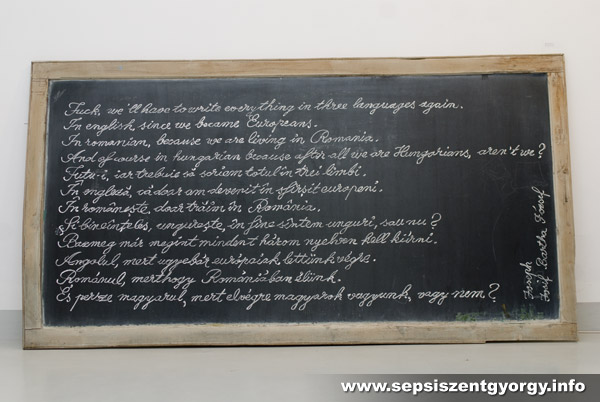 Fuck, we'll have to write everything in three languages again.
In english, since we became Europeans.
In romanian, because we are living in Romania.
And of course in hungarian because after all we are Hungarians, aren't we?
Futu-i, iar trebuie să scriem totul în trei limbi.
În engleză, că doar am devenit în sfîrşit europeni.
În româneşte, doar trăim în România.
Şi bineînţeles, ungureşte, în fine sîntem unguri, sau nu?
Bazmeg már megint mindent három nyelven kell kiírni.
Angolul, mert ugyebár európaiak lettünk végre.
Románul, merthogy Romániában élünk.
És persze magyarul, mert elvégre magyarok vagyunk, vagy nem?
Joseph
Iosif Bartha József
www.sepsiszentgyorgy.info